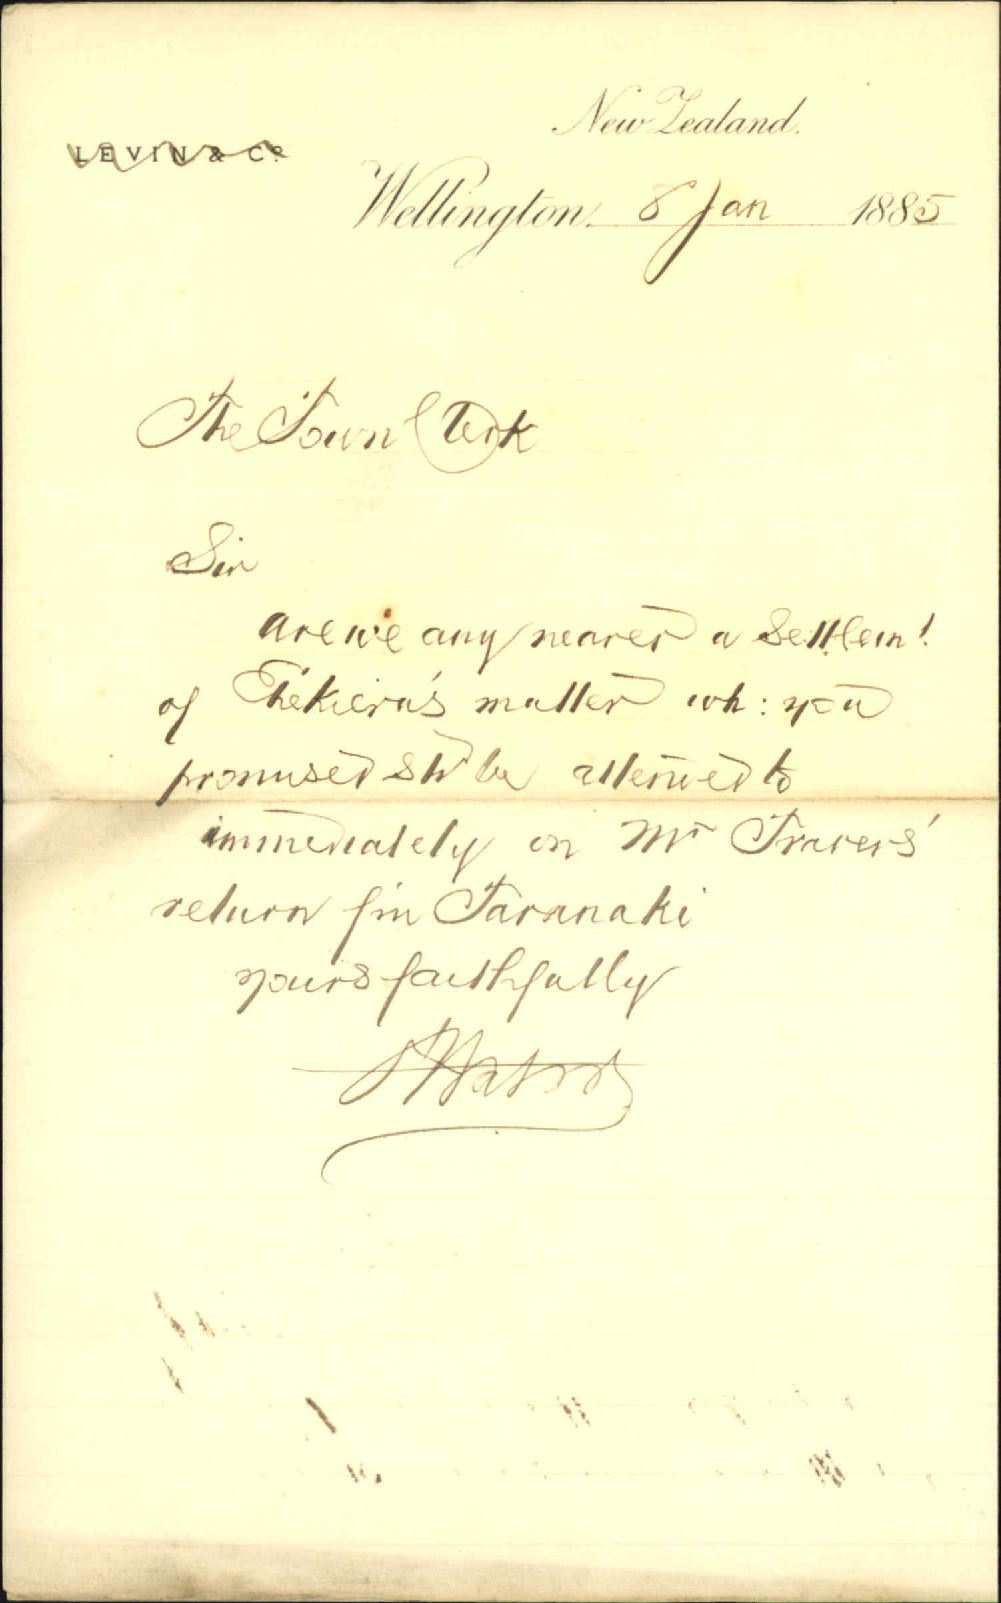 New Zealand.
LEVIN & Co.
Wellington. 8 Jan 1885
The Town Clerk
Sir
Are we any nearer a Settlemt.
of matter wh: you
promised shd be attended to
immediately on Mr Travers'
return fm Taranaki
yours faithfully